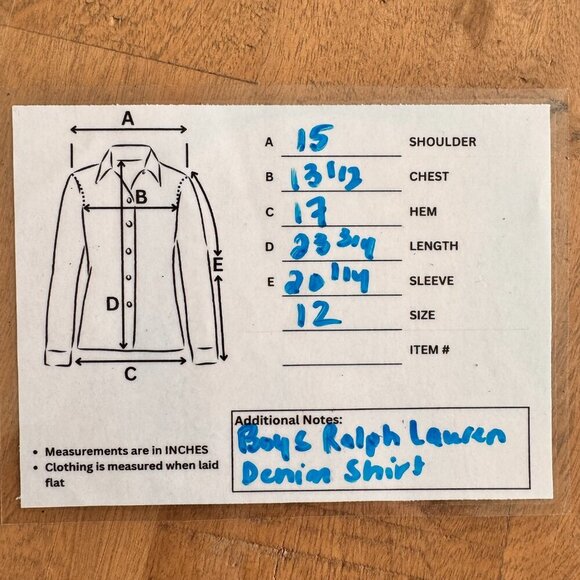 A
B
D
E
C
A 15 SHOULDER
B 13 1/2 CHEST
C 17 HEM
D 23 3/4 LENGTH
E 20 1/4 SLEEVE
12 SIZE
ITEM #
Additional Notes:
Boys Ralph Lauren
Denim Shirt
• Measurements are in INCHES
• Clothing is measured when laid
flat